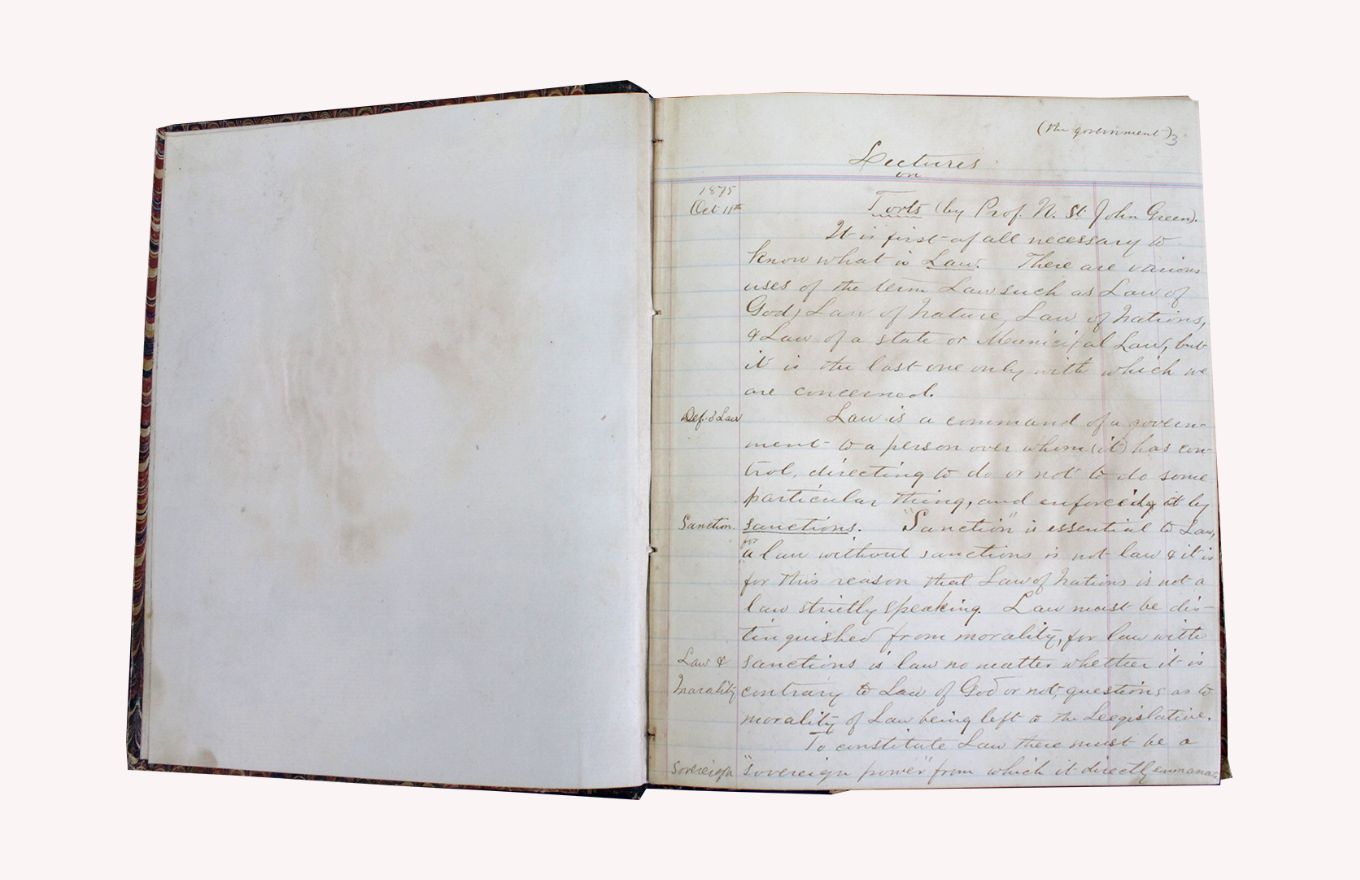 (the government) 3
Lectures
on
1875
Oct 11th Torts (by Prof. N. St. John Green).
It is first of all necessary to
know what is Law. There are various
uses of the term Law such as Law of
God, Law of Nature, Law of Nations,
& Law of a state or Municipal Law, but
it is the last one only with which we
are concerned.
Def. of Law Law is a command of a govern-
ment to a person over whom (it) has con-
trol, directing to do or not to do some
particular thing, and enforceing it by
Sanction. sanctions. "Sanction" is essential to Law,
for
a law without sanctions is not law & it is
for this reason that Law of Nations is not a
law strictly speaking. Law must be dis-
tinguished from morality, for law with
Law & sanctions is law no matter whether it is
Morality contrary to Law of God or not, questions as to
morality of Law being left to the Leegislative.
To constitute Law there must be a
Sovereign "sovereign power" from which it directly emmanates